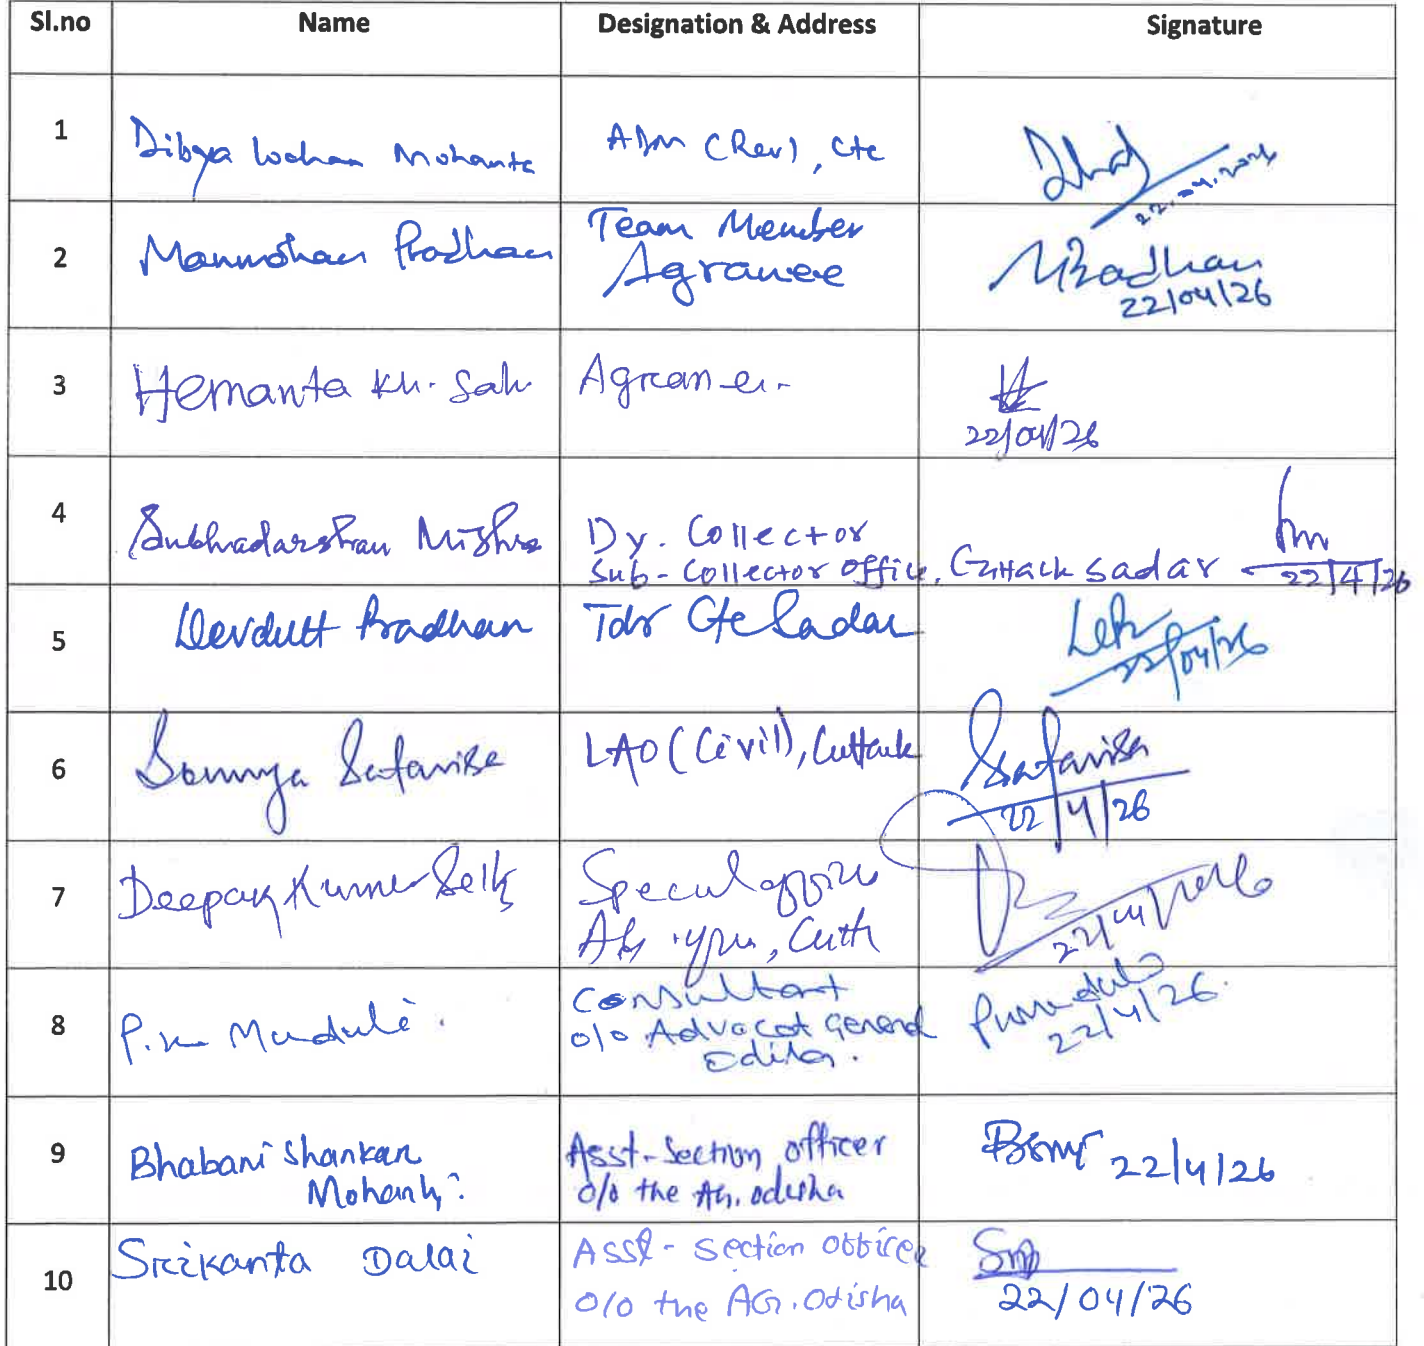 Sl.no Name Designation & Address Signature
1 Dibya Lochan Mohanta ADM (Rev), Ctc
22.04.2026
2 Manmohan Pradhan Team Member
Agranee MPradhan
22/04/26
3 Hemanta Ku. Sah Agranee
22/04/26
4 Subhadarshan Mishra Dy. Collector
Sub-Collector office, Cuttack Sadar 22/4/26
5 Devdutt Pradhan Tdr Ctc Sadar
22/04/26
6 Soumya Satarisa LAO (Civil), Cuttack Satarisa
22/4/26
7 Deepak Kumar Special
22/4/2026
8 P.K. Muduli. Consultant
o/o Advocat General
22/4/26.
9 Bhabani Shankar
Mohanty. Asst-Section officer
o/o the AG. odisha 22/4/26
10 Srikanta Dalai Asst-Section officer
o/o the AG. Odisha
22/04/26